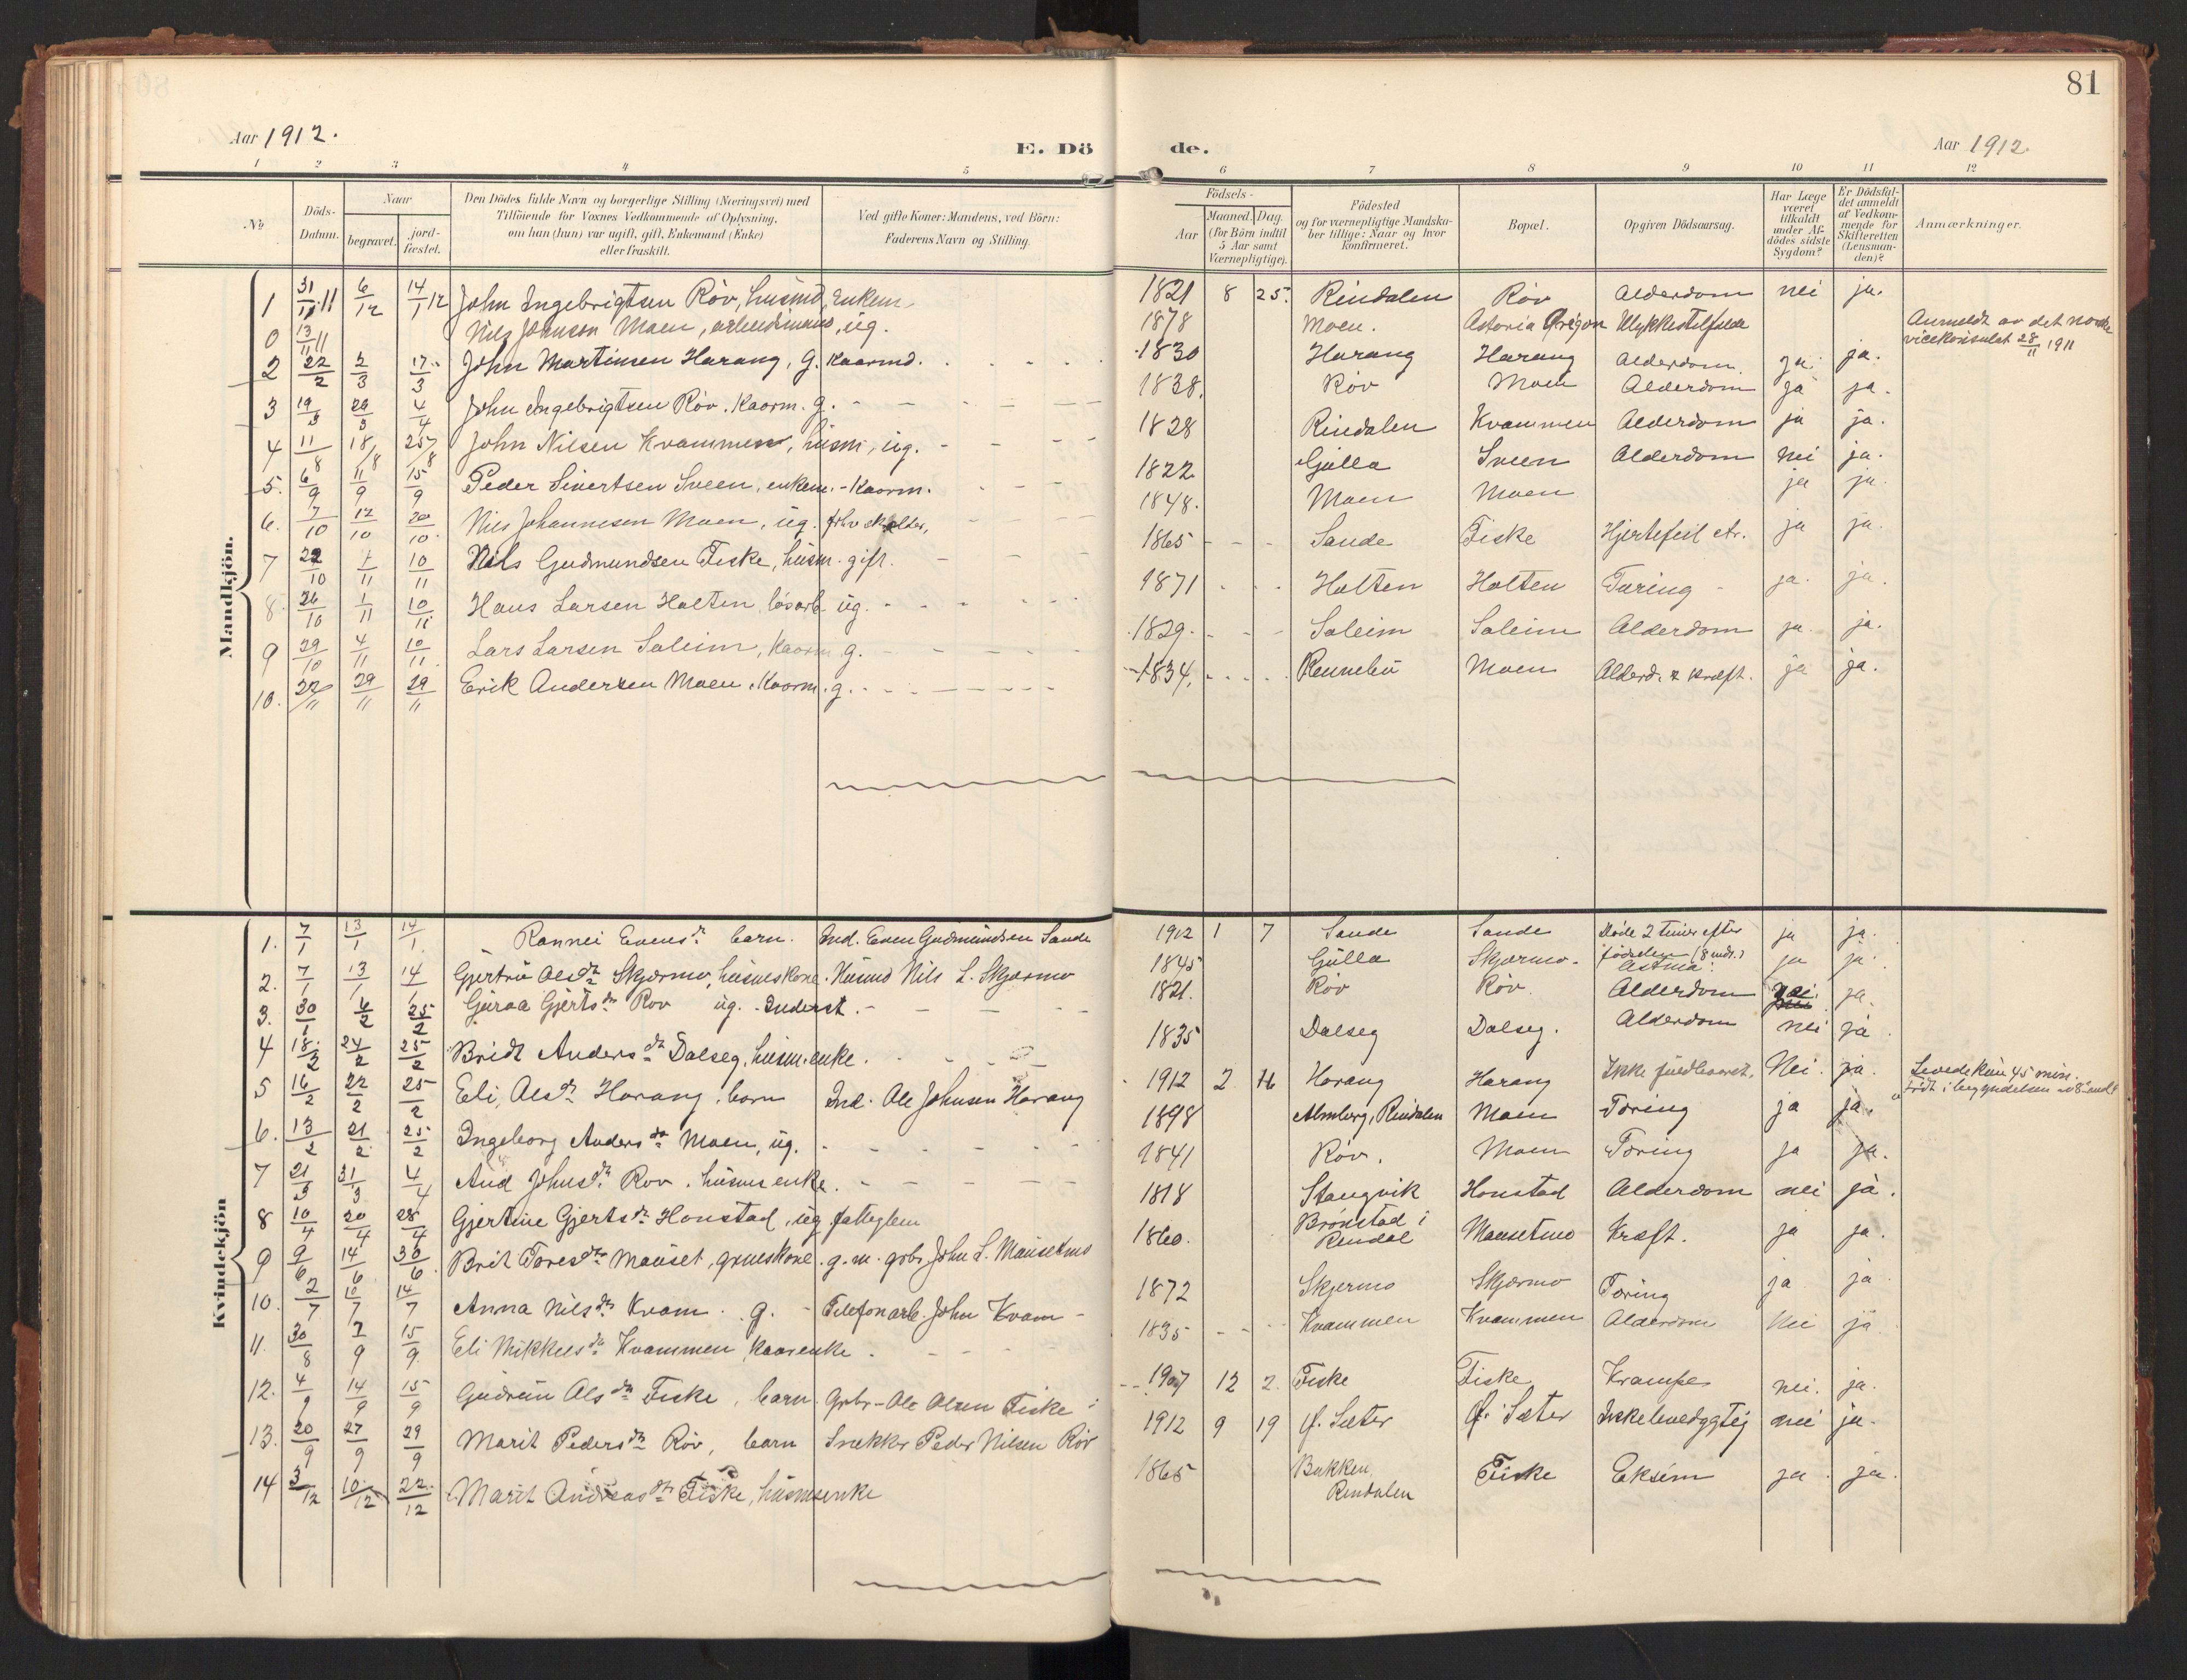 81
Aar 1912. E. Dö de. Aar 1912.
1 2 3 4 5 6 7 8 9 10 11 12
No Döds-Datum. Naar begravet. jord-fæstet. Den Dödes fulde Navn og borgerlige Stilling (Næringsvei) med Tilföiende for Voxnes Vedkommende af Oplysning, om han (hun) var ugift, gift, Enkemand (Enke) eller fraskilt. Ved gifte Koner: Mandens, ved Börn: Faderens Navn og Stilling. Födsels- Aar Maaned. Dag. (for Börn indtil 5 Aar samt Værnepligtige). Födested og for værnepligtige Mandskaber tillige: Naar og hvor konfirmeret. Bopæl. Opgiven Dödsaarsag. Har Læge været tilkaldt under Afdödes sidste Sygdom? Er Dödsfaldet anmeldt af Vedkommende for Skifteretten (Lensmanden)? Anmærkninger.
Mandkjön.
1 31/12 11 6/12 14/1 12 John Ingebrigtsen Röv, husmd, Enkem 1821 8 25. Rindalen Röv Alderdom nei ja.
0 13/11 11 Nils Johnsen Moen, arbeidsmand, ug. 1878 Moen. Astoria Oregon Ulykkestilfælde Anmeldt av det norske vicekonsulat 28/11 1911
2 22/2 2/3 17/3 John Martinsen Harang, g. Kaarmd. 1830 Harang Harang Alderdom. ja. ja.
3 19/3 29/3 4/4 John Ingebrigtsen Röv. Kaarm. g. 1838. Röv Moen Alderdom ja ja.
4 11/8 18/8 25/8 John Nilsen Kvammen, husm, ug. 1828 Rindalen Kvammen Alderdom ja ja.
5. 6/9 11/9 15/9 Peder Sivertsen Sveen, enkem. - Kaarm. 1822 Gulla Sveen Alderdom nei ja.
6. 7/10 12/10 20/10 Nils Johannesen Moen, ug. 1848. Moen Moen ja ja.
7 22/10 1/11 10/11 Nils Gudmundsen Fiske, husm. gift. 1865 Sande Fiske Hjertefeil etc. ja ja.
8. 26/10 1/11 10/11 Hans Larsen Holten, lösarb. ug. 1871 Holten Holten Tæring ja. ja.
9 29/10 4/11 10/11 Lars Larsen Soleim, Kaarm g. 1829. Soleim Soleim Alderdom ja. ja.
10. 22/11 29/11 29/11 Erik Andersen Moen. Kaarm. g. 1834. Rennebu Moen Alderd. & kræft. ja ja.
Kvindekjön
1. 7/1 13/1 14/1 Rannei Evensdr. barn. Ind. Even Gudmundsen Sande 1912 1 7 Sande Sande Döde 2 timer efter födselen (8 mdr.) ja ja.
2. 7/1 13/1 14/1 Gjertru Olsdr Skjærmo, husmskone. Husmd Nils L. Skjærmo 1845 Gulla Skjærmo. Astma. ja ja.
3. 30/1 6/2 25/2 Guraa Gjertsdr Röv ug. - Inderst. 1821. Röv Röv. Alderdom nei. ja.
4 18/2 24/2 25/2 Bridt Andersdr Dalseg, husm. enke. 1835 Dalseg Dalseg. Alderdom nei ja
5 16/2 22/2 25/2 Eli, Olsdr Harang, barn Ind. Ole Johnsen Harang 1912 2 16 Harang Harang Ikke fuldbaaret. Nei. ja. Levede kun 45 min. födt i begyndelsen av 8de mdr
6. 13/2 21/2 25/2 Ingeborg Andersdr Moen, ug. 1898 Almberg, Rindalen Moen Tæring ja ja.
7 21/3 31/3 4/4 Aud Johnsdr. Röv. husmsenke. 1841 Röv. Moen Tæring ja ja.
8 10/4 20/4 28/4 Gjertine Gjertsdr Honstad, ug fattiglem 1818 Stangvik Honstad Alderdom nei ja.
9 9/6 14/6 30/6 Brit Toresdtr Mauset, grmskone. g. m. grbr. John L. Mausetmo 1860. Brönstad i Rindal Mausetmo Kræft. ja ja.
10. 2/7 10/7 14/7 Anna Nilsdtr Kvam. g. - Telefonarb. John Kvam 1872 Skjermo Skjærmo Tæring ja ja
11. 30/8 7/9 15/9 Eli Mikkelsdr Kvammen, Kaarenke. 1835 Kvammen Kvammen Alderdom Nei ja
12. 4/9 14/9 15/9 Gudrun Olsdtr Fiske, barn. Grbr - Ole Olsen Fiske 1907 12 2. Fiske Fiske Krampe nei. ja.
13. 20/9 27/9 29/9 Marit Pedersdtr Röv, barn Snekker Peder Nilsen Röv 1912 9 19 Ø. Sæter Ø. Sæter Ikke levedygtig nei ja.
14 3/12 10/12 22/12 Marit Andreasdtr Fiske, husmsenke 1865 Bakken Rindalen Fiske Eksem ja ja.